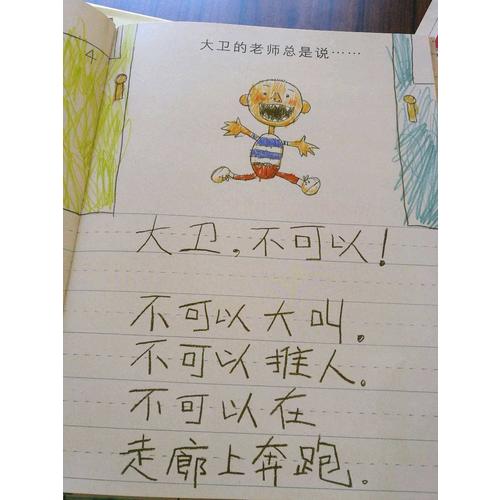 大卫的老师总是说……
4
大卫，不可以！
不可以大叫。
不可以推人。
不可以在
走廊上奔跑。